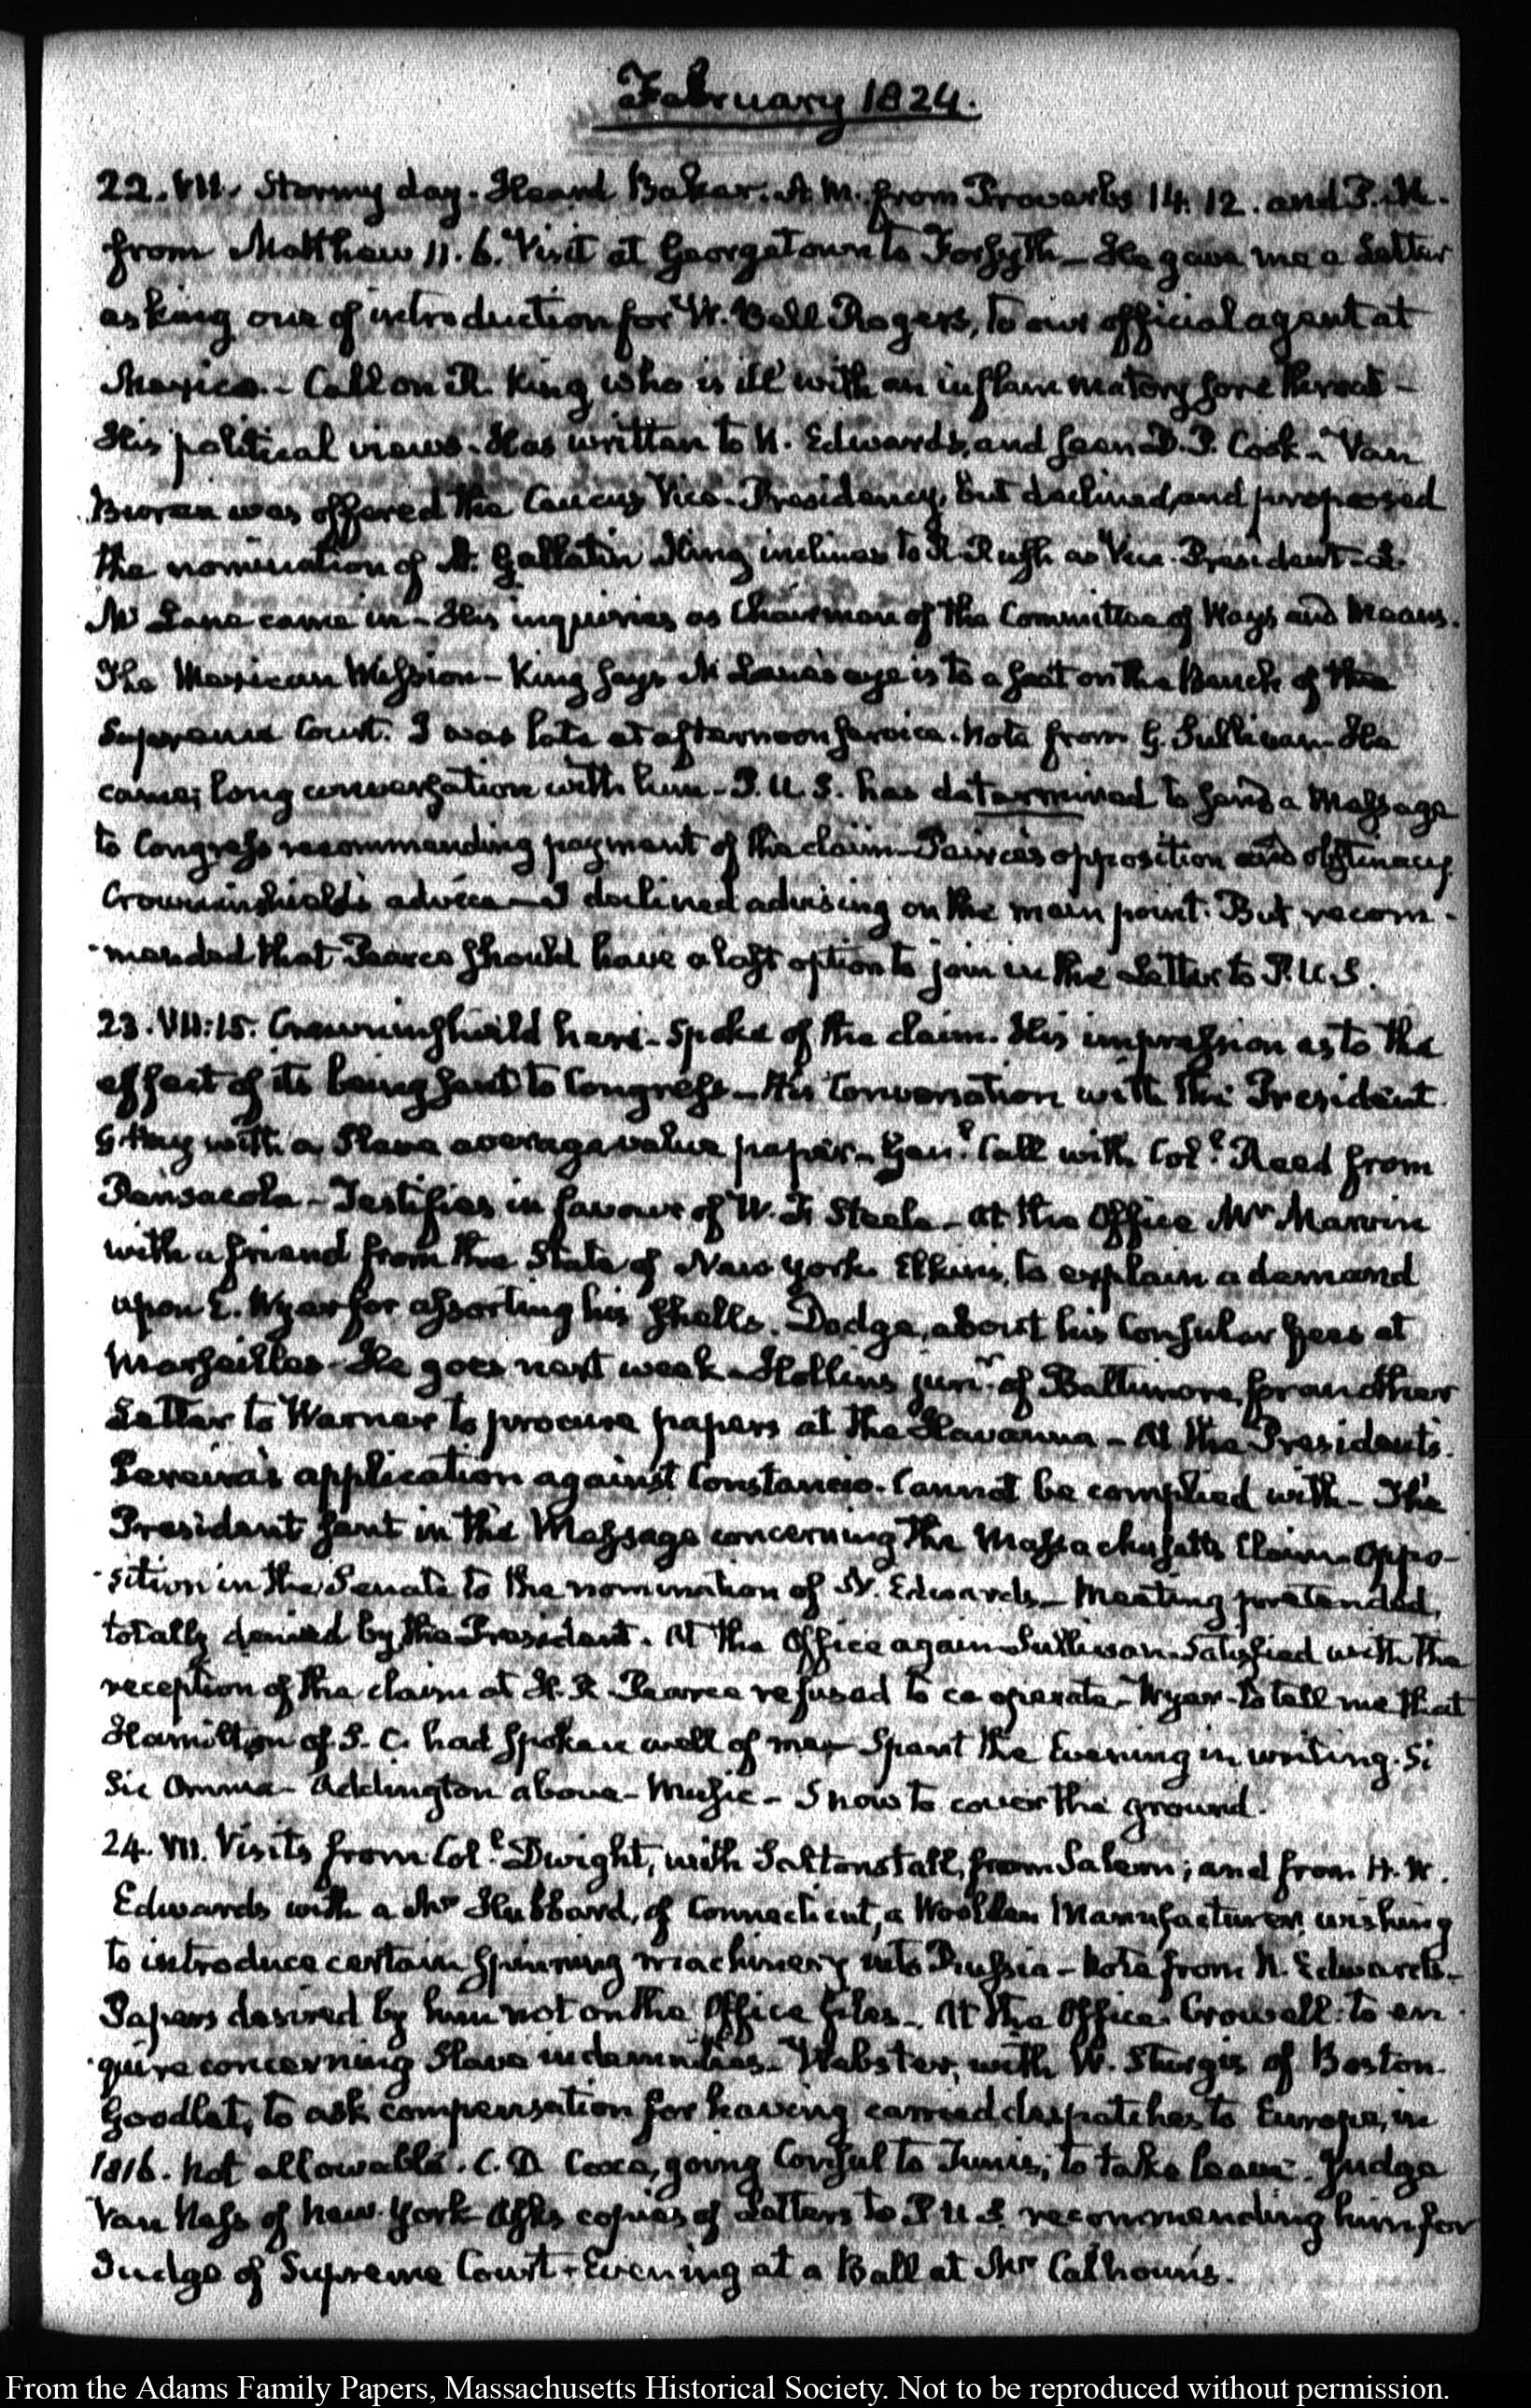 February 1824.
22. VII. Stormy day. Heard Baker. A.M. from Proverbs 14. 12. and P.M.
from Matthew 11. 6. Visit at Georgetown to Forsyth — He gave me a Letter
asking one of introduction for W. Bell Rogers, to our official agent at
Mexico. — Call on R. King who is ill with an inflammatory sore throat —
His political views. Has written to N. Edwards, and seen D. P. Cook. Van
Buren was offered the Caucus Vice-Presidency, but declined, and proposed
the nomination of A. Gallatin King inclines to R. Rush as Vice-President —
Mc Lane came in — His inquiries as Chairman of the Committee of Ways and Means.
The Mexican Mission — King says Mc Lane's eye is to a seat on the Bench of the
Supreme Court. I was late at afternoon service. Note from G. Sullivan — He
came; long conversation with him — P.U.S. has determined to send a Message
to Congress recommending payment of the claim — opposition and obstinacy
Crowninshield's advice — I declined advising on the main point. But, recom-
-mended that Pearce should have a last option to join in the Letter to P.U.S.
23. VII:15. Crowninshield here — Spoke of the claim. His impression as to the
effect of its being sent to Congress — His Conversation with the President.
with a Slave average value paper — Genl. Call with Coll. Reed from
Pensacola — Testifies in favour of W. F. Steele — At the Office Mr Marvin
with a friend from the State of New York. Elkins, to explain a demand
upon E. Wyer for assorting his shells. Dodge, about his Consular fees at
Marseilles — He goes next week — Hollins junr. of Baltimore, for another
Letter to Warner to procure papers at the Havanna — At the President's.
Pereira's application against Constancio. Cannot be complied with — The
President sent in the Message concerning the Massachusetts Claim — Oppo-
-sition in the Senate to the nomination of N. Edwards — Meeting pretended,
totally denied by the President. At the Office again — Sullivan. Satisfied with the
reception of the claim at H.R. Pearce refused to co operate — Wyer — to tell me that
Hamilton of S. C. had spoken well of me — Spent the Evening in writing. Si
Sic Omnia — Addington above — Music — Snow to cover the ground.
24. VII. Visits from Coll. Dwight, with Saltonstall, from Salem; and from H. W.
Edwards with a Mr Hubbard, of Connecticut, a Woollen Manufacturer, wishing
to introduce certain spinning machinery into Russia — Note from N. Edwards —
Papers desired by him not on the Office files — At the Office. Crowell: to en-
-quire concerning Slave indemnities — Webster, with W. Sturgis of Boston.
Goodlet, to ask compensation for having carried dispatches to Europe, in
1816. Not allowable. C. D. Coxe, going Consul to Tunis, to take leave. Judge
Van Ness of New-York Asks copies of Letters to P U S. recommending him for
Judge of Supreme Court — Evening at a Ball at Mr Calhoun's.
From the Adams Family Papers, Massachusetts Historical Society. Not to be reproduced without permission.